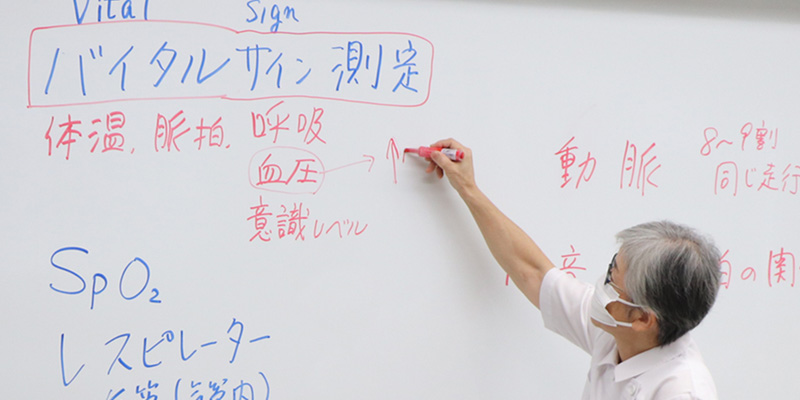 Vital Sign
バイタルサイン測定
体温, 脈拍, 呼吸
血圧 → ↑
意識レベル
SpO2
レスピレーター
動脈
8〜9割
同じ走行
音
拍の関